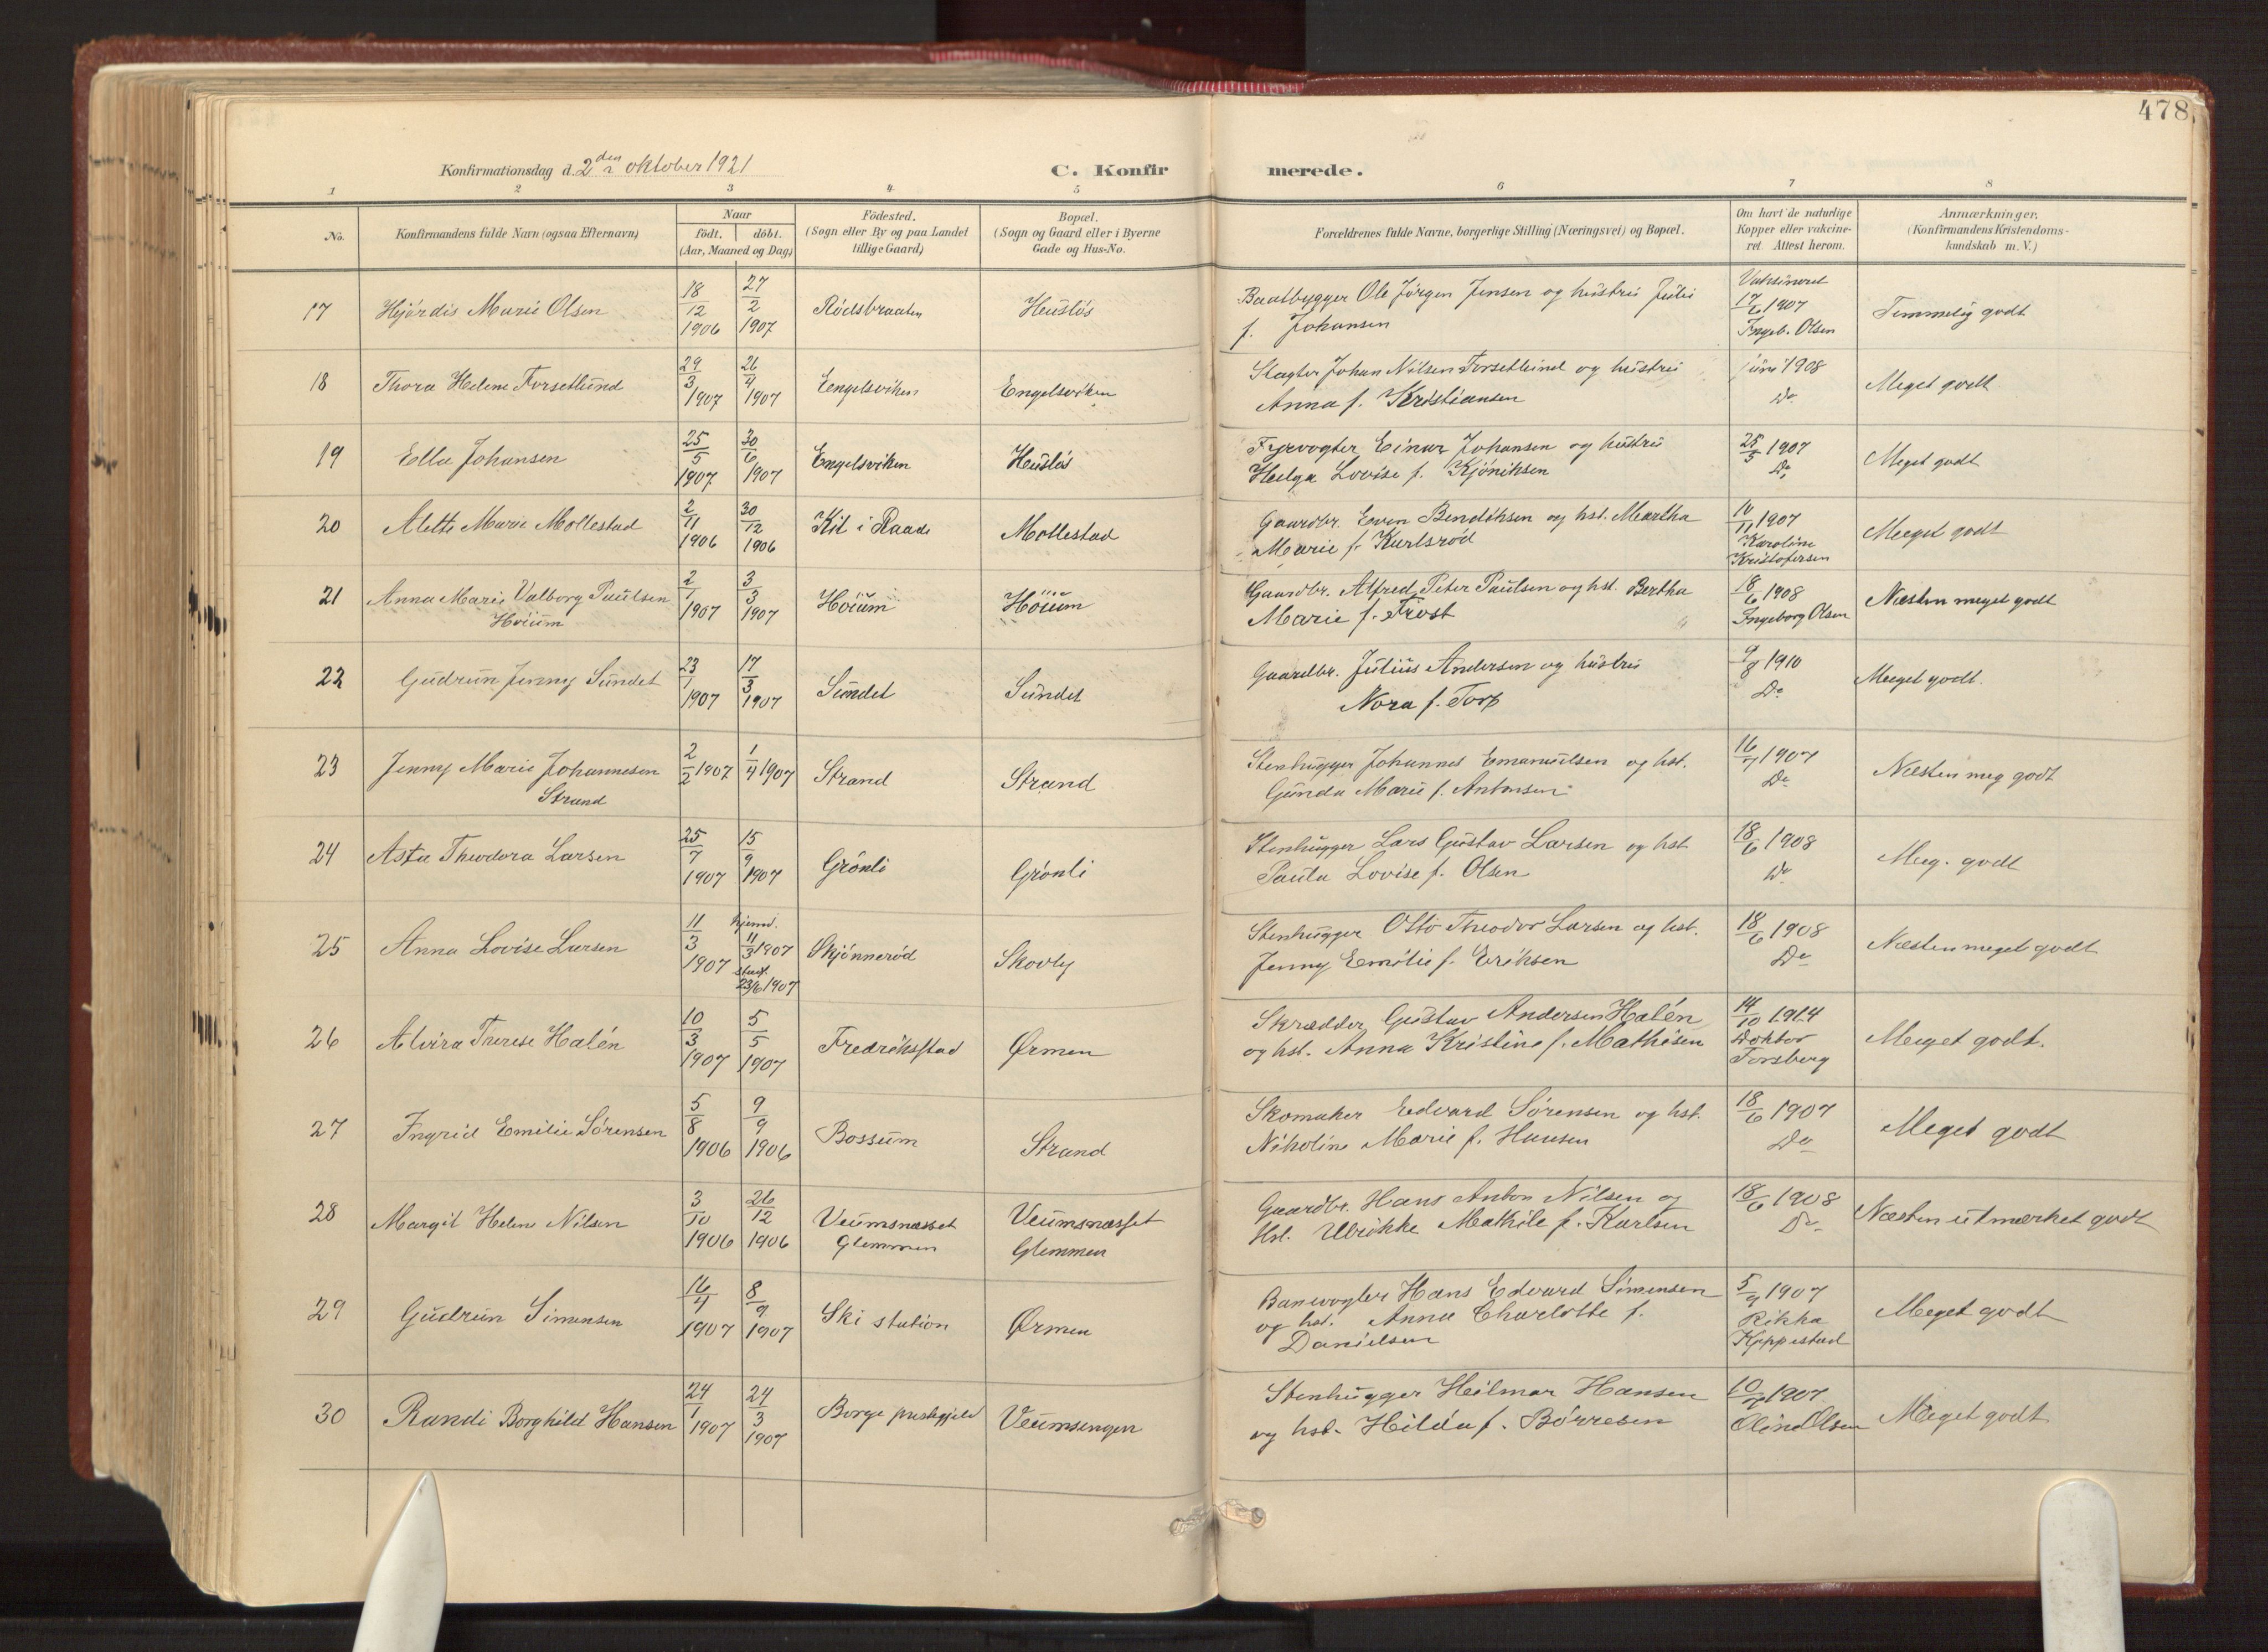 478
Konfirmationsdag d. 2den oktober 1921
C. Konfirmerede.
1 2 3 4 5 6 7 8
No.
Konfirmandens fulde Navn (ogsaa Efternavn)
Naar
født. døbt.
(Aar, Maaned og Dag)
Fødested.
(Sogn eller By og paa Landet
tillige Gaard)
Bopæl.
(Sogn og Gaard eller i Byerne
Gade og Hus-No.
Forældrenes fulde Navne, borgerlige Stilling (Næringsvei) og Bopæl.
Om havt de naturlige
Kopper eller vakcine-
ret. Attest herom.
Anmærkninger.
(Konfirmandens Kristendoms-
kundskab m. V.)
17 Hjørdis Marie Olsen 18/12 1906 27/2 1907 Rødsbraaten Huslös
Baatbygger Ole Jørgen Jensen og hustru Julie
f. Johansen
Vaksineret
17/6 1907
Ingeb. Olsen
Temmelig godt
18 Thora Helene Forsetlund 29/3 1907 26/4 1907 Engelsviken Engelsviken
Slagter Johan Nilsen Forsetlund og hustru
Anna f. Kristiansen
juni 1908
Do
Meget godt
19 Ella Johansen 25/5 1907 30/6 1907 Engelsviken Huslös
Fyrvogter Einar Johansen og hustru
Helga Lovise f. Kjöniksen
1907
Do
Meget godt
20 Alette Marie Mollestad 2/11 1906 30/12 1906 Kil i Raade Mollestad
Gaardbr. Even Bendiksen og hst. Martha
Marie f. Karlsrød
10/11 1907
Karoline
Kristofersen
Meget godt
21 Anna Marie Valborg Paulsen
Höium
2/1 1907 3/3 1907 Höium Höium
Gaardbr. Alfred Peter Paulsen og hst. Bertha
Marie f. Trost
18/6 1908
Ingeborg Olsen
Næsten meget godt
22 Gudrun Jenny Sundet 23/1 1907 17/3 1907 Sundet Sundet
Gaardbr. Julius Andersen og hustru
Nora f. Torp
9/8 1910
Do
Meget godt.
23 Jenny Marie Johannesen
Strand
2/2 1907 1/4 1907 Strand Strand
Stenhugger Johannes Emanuelsen og hst.
Gunda Marie f. Antonsen
16/7 1907
Do
Næsten meg godt
24 Asta Theodora Larsen 25/7 1907 15/9 1907 Grönli Grönli
Stenhugger Lars Gustav Larsen og hst
Paula Lovise f. Olsen
18/6 1908
Do
Meg. godt
25 Anna Lovise Larsen 11/3 1907 hjemd. 11/3 1907
stadf.
23/6 1907
Skjönnerød Skovly
Stenhugger Otto Theodor Larsen og hst.
Jenny Emilie f. Eriksen
18/6 1908
Do
Næsten meget godt
26 Alvira Therese Halén 10/3 1907 5/5 1907 Fredrikstad Ørmen
Skrædder Gustav Andersen Halén
og hst. Anna Kristine f. Mathisen
14/10 1914
Doktor
Forsberg
Meget godt.
27 Ingrid Emilie Sørensen 5/8 1906 9/9 1906 Bossum Strand
Skomaker Edvard Sørensen og hst.
Nikoline Marie f. Hansen
18/6 1907
Do
Meget godt
28 Margit Helene Nilsen 3/10 1906 26/12 1906 Veumsnæsset
Glemmen
Veumsnæsset
Glemmen
Gaardbr. Hans Anton Nilsen og
Hst. Ulrikke Mathile f. Karlsen
18/6 1908
Do
Næsten utmerket godt
29 Gudrun Simensen 16/4 1907 8/9 1907 Ski station Ørmen
Banevogter Hans Edvard Simensen
og hst. Anna Charlotte f.
Danielsen
5/9 1907
Rikka
Kjppestad
Meget godt
30 Randi Borghild Hansen 24/1 1907 24/3 1907 Borge prestegjeld Veumsengen
Stenhugger Hilmar Hansen
og hst. Hilda f. Børresen
1907
Olin Olsen
Meget godt